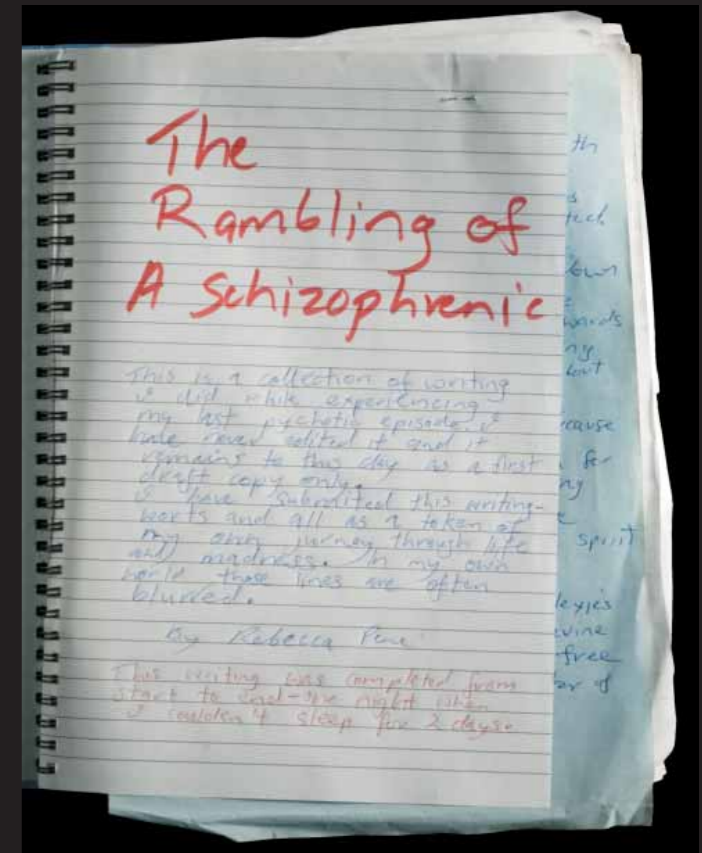 The
Rambling of
A Schizophrenic
This is a collection of writing
I did while experiencing
my last pychotic episode. I
have never edited it and it
remains to this day as a first
draft copy only.
I have submitted this writing-
warts and all as a token of
my own journey through life
and madness. In my own
world those lines are often
blurred.
By Rebecca
This writing was completed from
start to end - the night when
I coulden't sleep for 2 days.
th
own
words
ny
ecause
for
ny
spirit
free